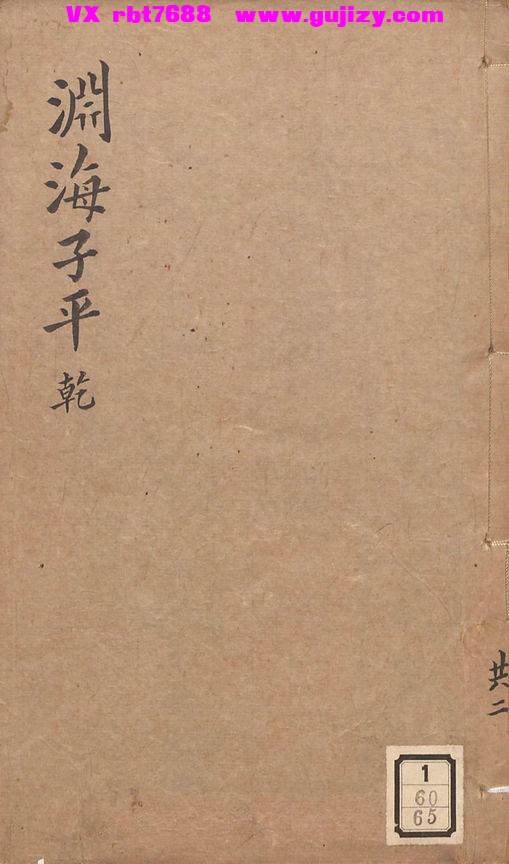 VX rbt7688 www.gujizy.com
淵海子平 乾
共二
1
60
65